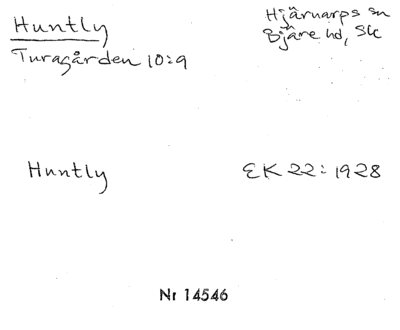 Huntly
Hjärnarps sn
Bjäre hd, Sk
Turagården 10:9
Huntly
EK 22: 1928
Nr 14546